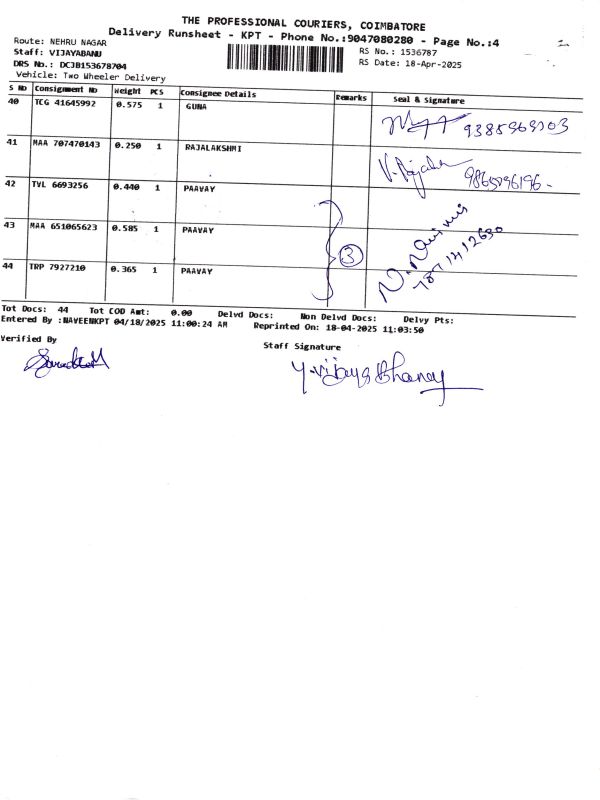 THE PROFESSIONAL COURIERS, COIMBATORE
Delivery Runsheet - KPT - Phone No.:9047080280 - Page No.:4
Route: NEHRU NAGAR
RS No.: 1536787
Staff: VIJAYABANU
RS Date: 18-Apr-2025
DRS No.: DCJB153678704
Vehicle: Two Wheeler Delivery
S NO Consignment No Weight PCS Consignee Details Remarks Seal & Signature
40 TCG 41645992 0.575 1 GUNA
41 MAA 707470143 0.250 1 RAJALAKSHMI
V. Rajala
42 TVL 6693256 0.440 1 PAAVAY
43 MAA 651065623 0.585 1 PAAVAY
3
44 TRP 7927210 0.365 1 PAAVAY
Tot Docs: 44 Tot COD Amt: 0.00 Delvd Docs: Non Delvd Docs: Delvy Pts:
Entered By :NAVEENKPT 04/18/2025 11:00:24 AM Reprinted On: 18-04-2025 11:03:50
Verified By
Staff Signature
Y. Vijaya Bhanay